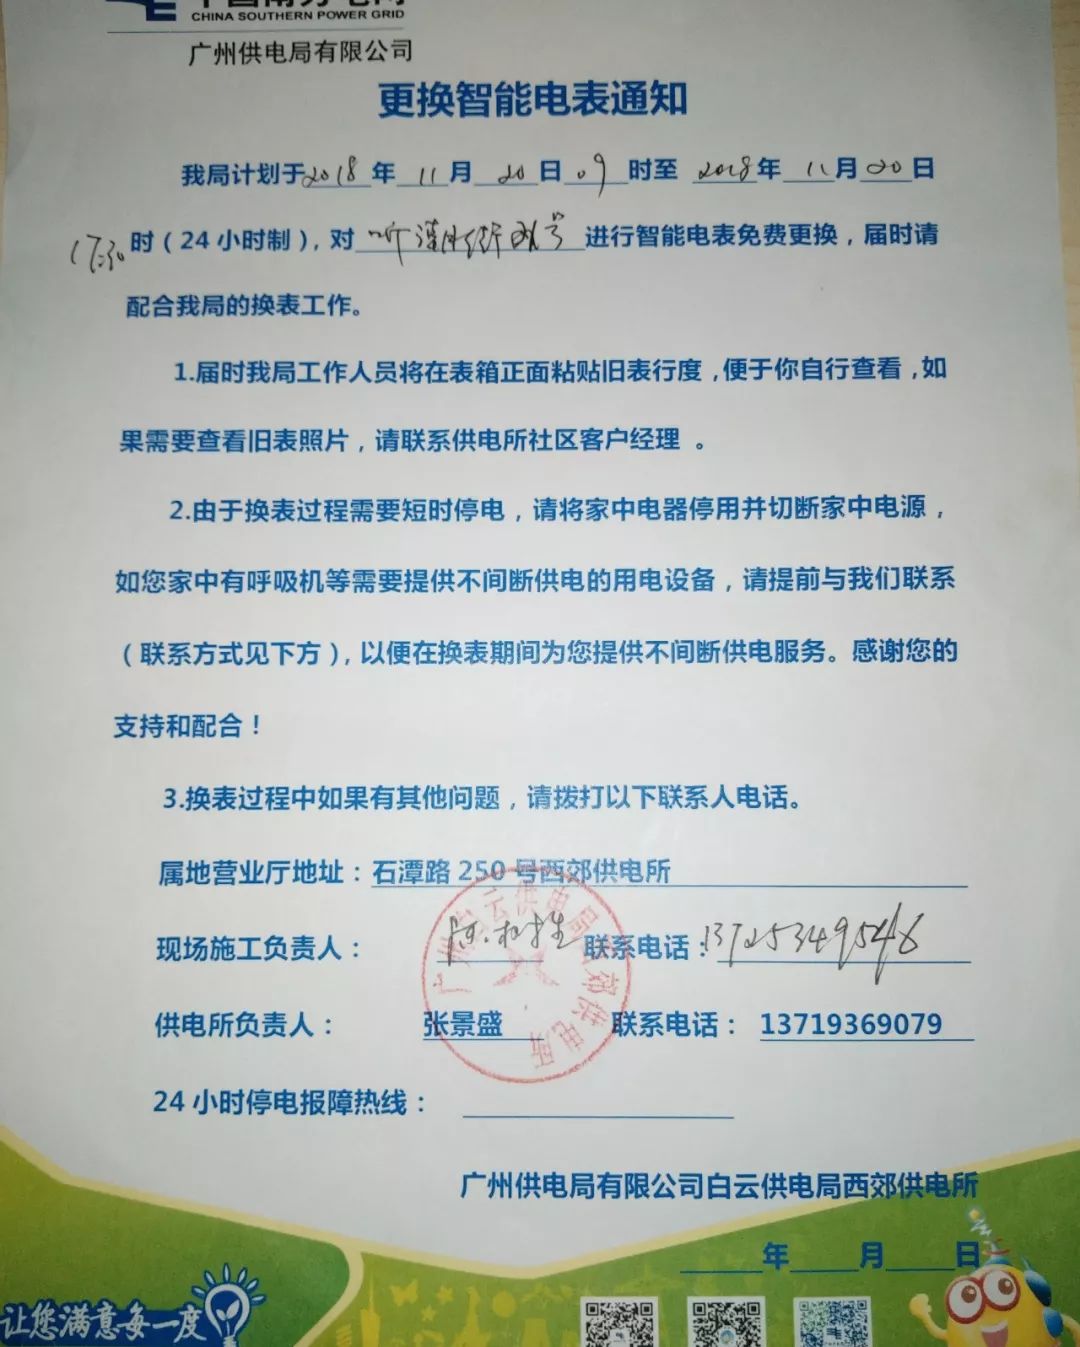 CHINA SOUTHERN POWER GRID
广州供电局有限公司
更换智能电表通知
我局计划于2018年11月20日09时至2018年11月20日
17:30时（24小时制），对 进行智能电表免费更换，届时请
配合我局的换表工作。
1.届时我局工作人员将在表箱正面粘贴旧表行度，便于你自行查看，如
果需要查看旧表照片，请联系供电所社区客户经理 。
2.由于换表过程需要短时停电，请将家中电器停用并切断家中电源，
如您家中有呼吸机等需要提供不间断供电的用电设备，请提前与我们联系
（联系方式见下方），以便在换表期间为您提供不间断供电服务。感谢您的
支持和配合！
3.换表过程中如果有其他问题，请拨打以下联系人电话。
属地营业厅地址：石潭路250号西郊供电所
现场施工负责人： 联系电话：13725349546
供电所负责人： 张景盛 联系电话： 13719369079
24小时停电报障热线：
广州白云供电局西郊供电所
广州供电局有限公司白云供电局西郊供电所
年 月 日
让您满意每一度